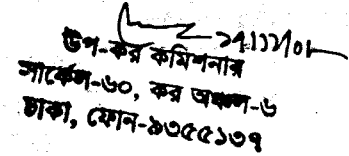 ২৭/১১/০৮
উপ-কর কমিশনার
সার্কেল-৬০, কর অঞ্চল-৬
ঢাকা, ফোন-৯৩৫৫১৩৭